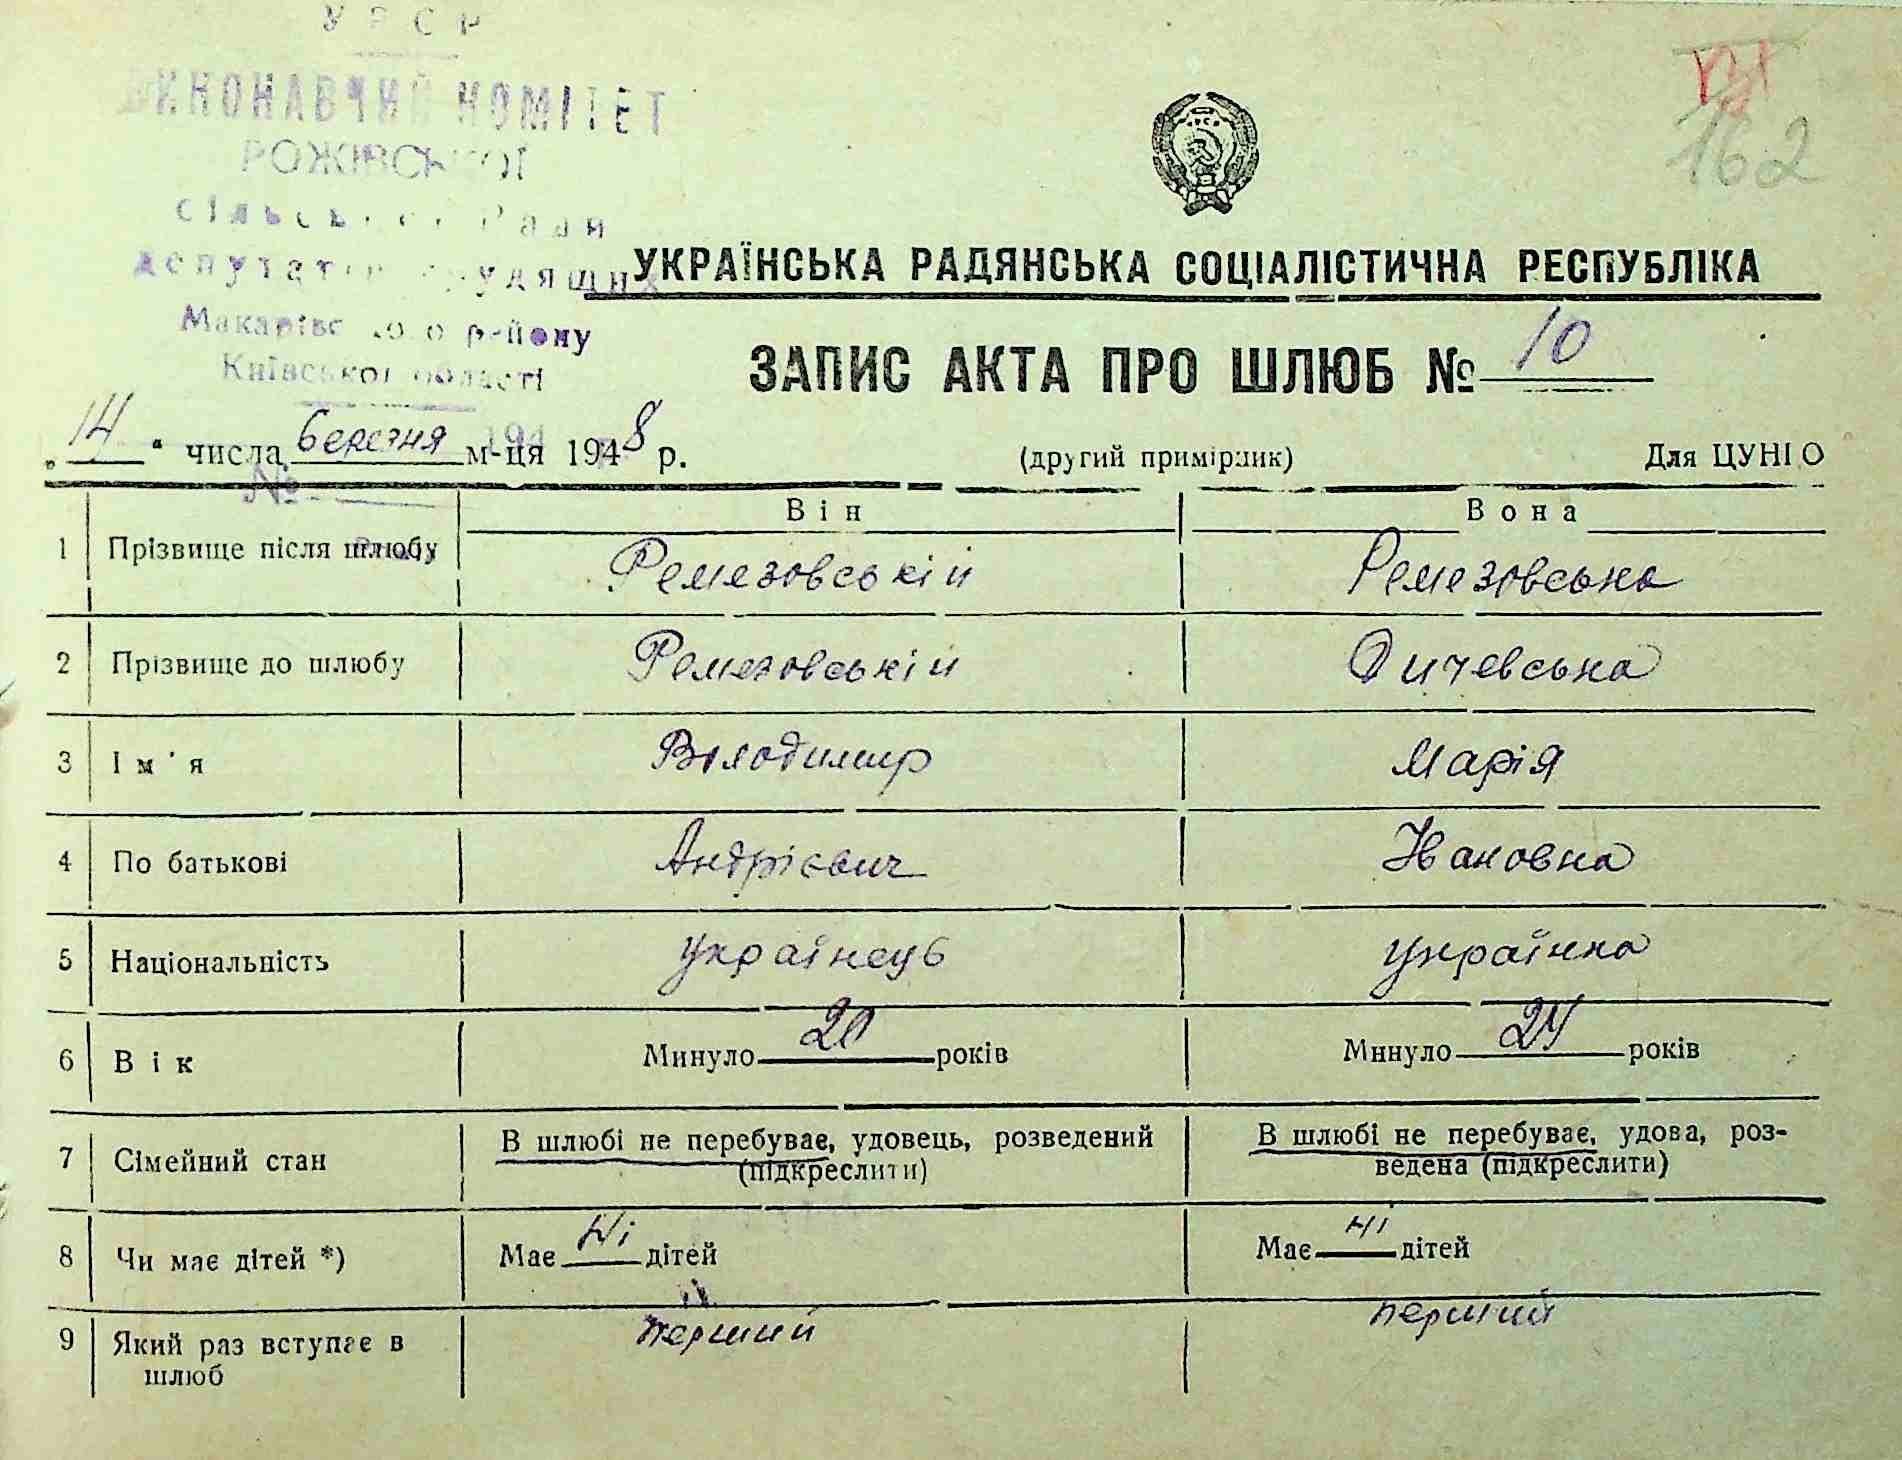 УРСР
ВИКОНАВЧИЙ КОМІТЕТ
РОЖІВСЬКОЇ
сільської Ради
депутатів трудящих
Макарівського району
Київської області
№
162
УКРАЇНСЬКА РАДЯНСЬКА СОЦІАЛІСТИЧНА РЕСПУБЛІКА
ЗАПИС АКТА ПРО ШЛЮБ № 10
„14“ числа березня м-ця 1948 р. (другий примірник) Для ЦУНГО
Він Вона
1 Прізвище після шлюбу Ремезовській Ремезовська
2 Прізвище до шлюбу Ремезовській Дичевська
3 Ім'я Володимир Марія
4 По батькові Андрієвич Івановна
5 Національність українець українка
6 Вік Минуло 20 років Минуло 24 років
7 Сімейний стан В шлюбі не перебуває, удовець, розведений В шлюбі не перебуває, удова, роз-
(підкреслити) ведена (підкреслити)
8 Чи має дітей *) Має Ні дітей Має ні дітей
9 Який раз вступає в перший перший
шлюб